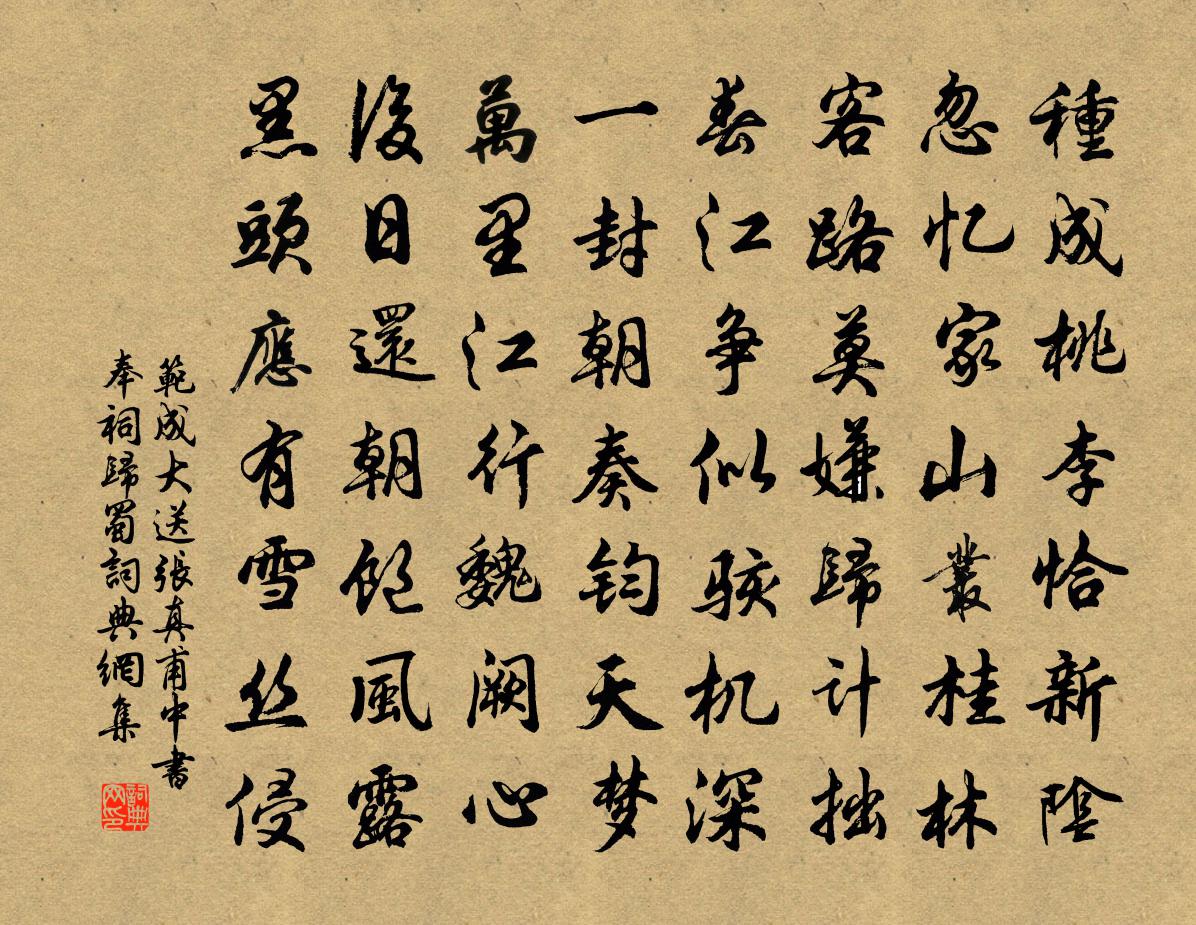 種成桃李恰新陰
忽忆家山叢桂林
客路莫嫌歸计拙
春江争似骇机深
一封朝奏钧天梦
萬里江行魏阙心
後日還朝饱風露
黑頭應有雪丝侵
範成大送張真甫中書
奉祠歸蜀詞典網集
詞典网印